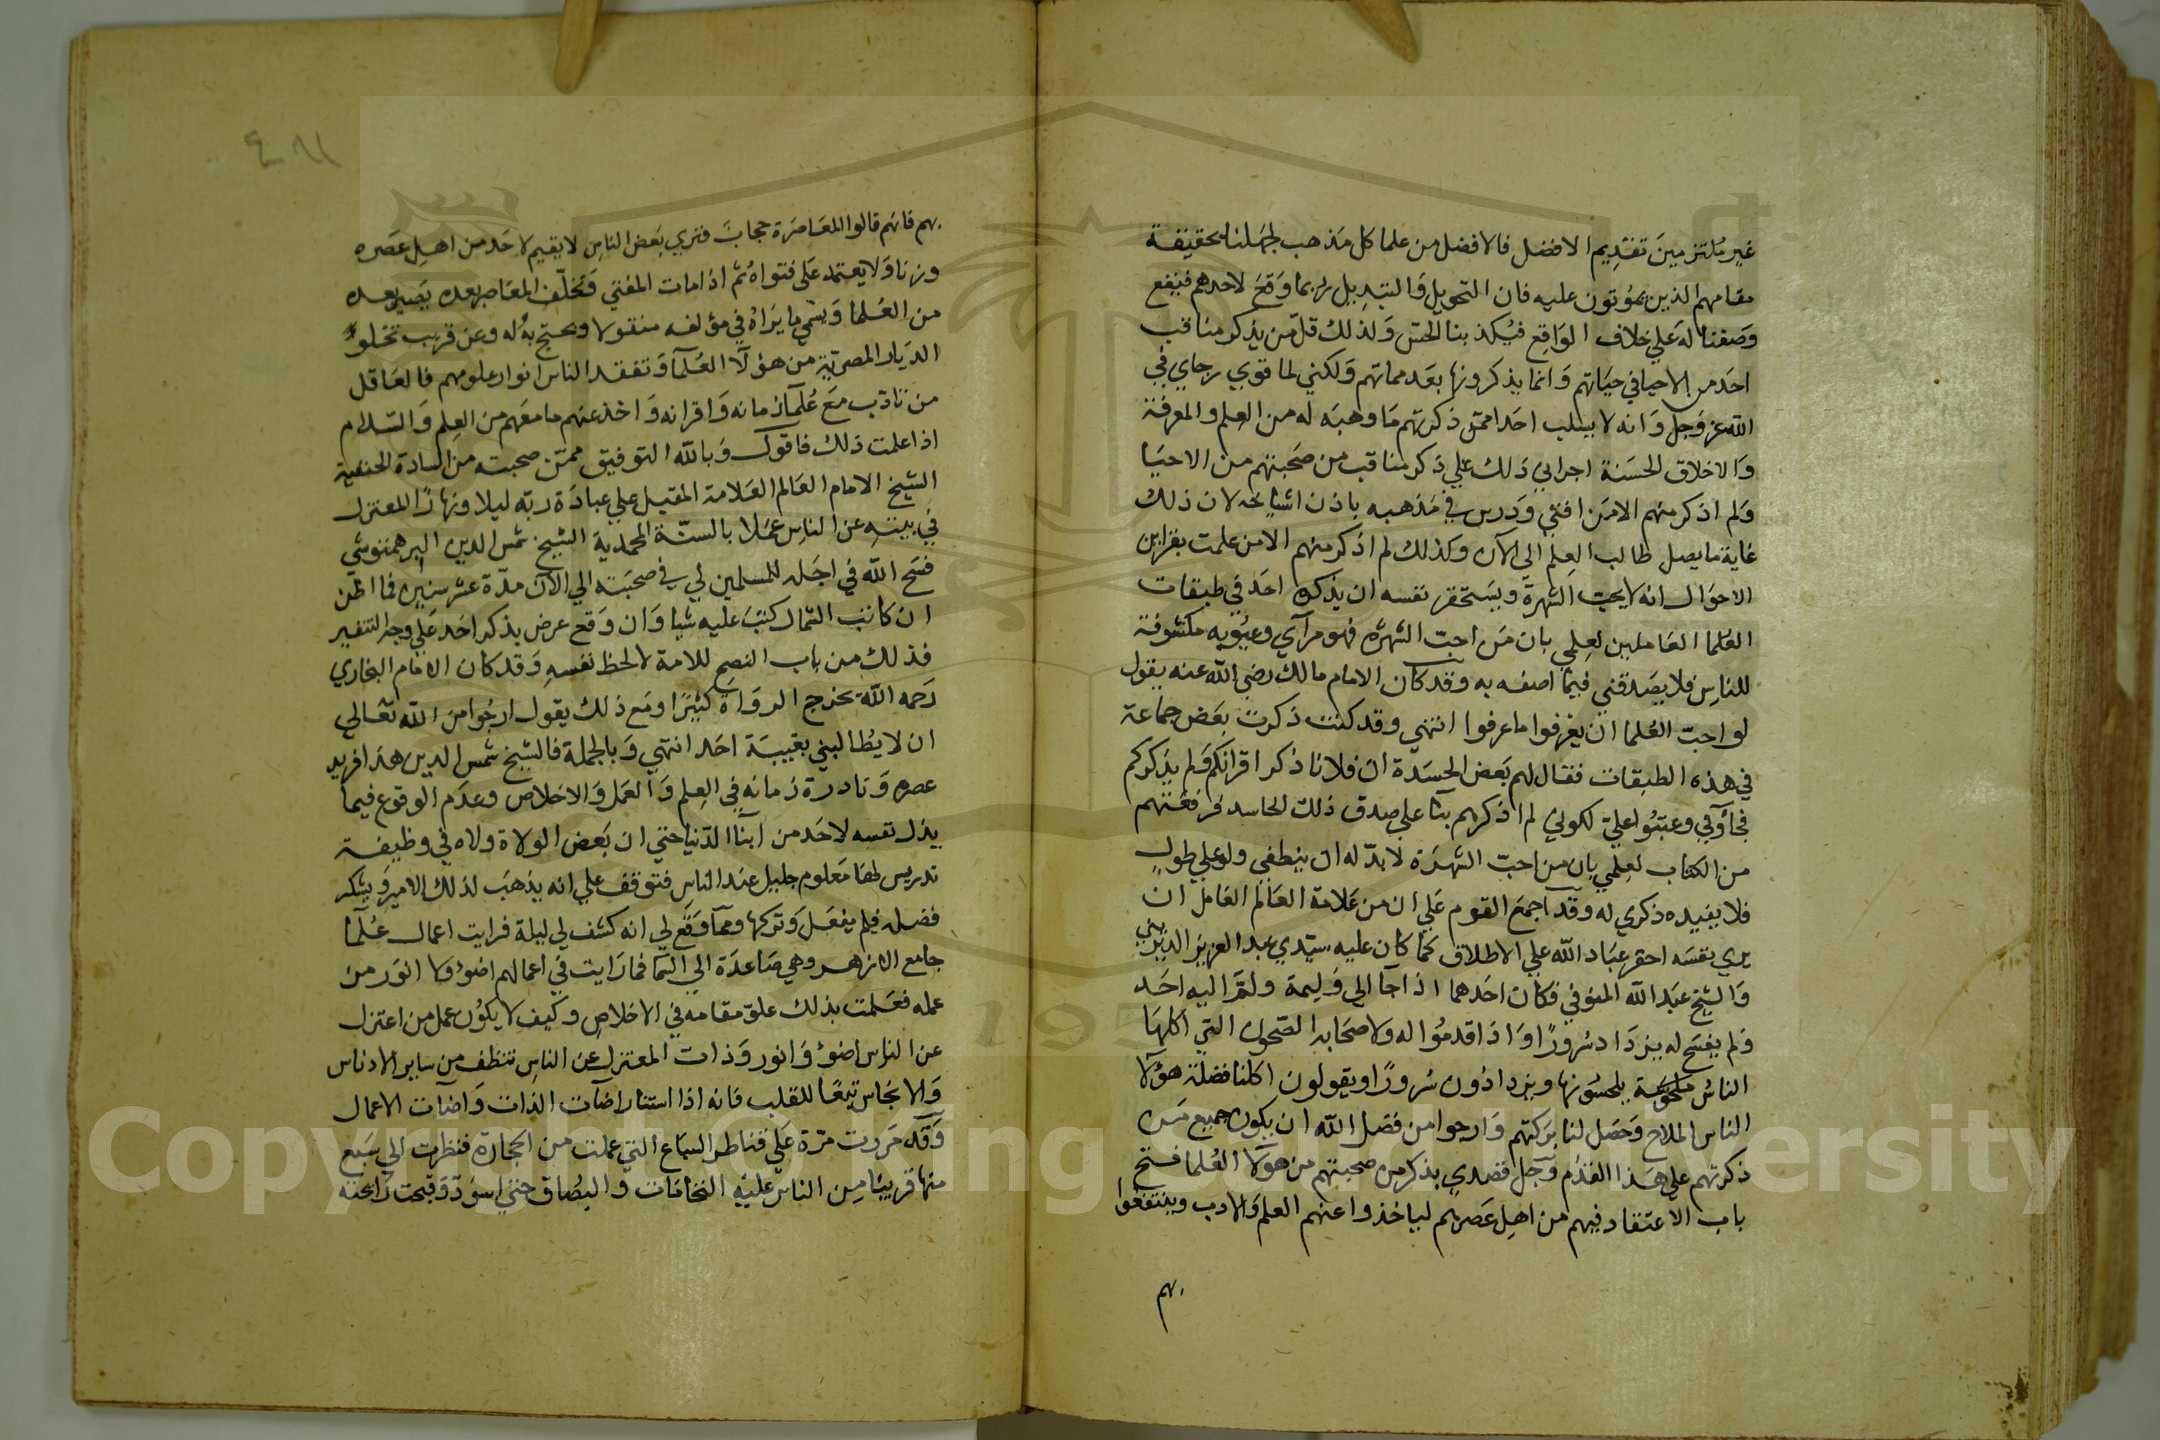 غير ملتزمين تقديم الافضل فالافضل من علما كل مذهب لجهلنا بحقيقة
مقامهم الذين يموتون عليه فان التحويل والتبديل ربما وقع لاحدهم فيقع
وصفنا له علي خلاف الواقع فيكذبنا الحس ولذلك قل من يذكر مناقب
احد من الاحيا في حياتهم وانما يذكرونها بعد مماتهم ولكني لما قوي رجاي في
الله عز وجل وانه لا يسلب احدا ممن ذكرتهم ما وهبه له من العلم والمعرفة
والاخلاق الحسنة اجراني ذلك علي ذكر مناقب من صحبتهم من الاحيا
ولم اذكر منهم الا من افتي ودرس في مذهبه باذن اشياخه لان ذلك
غاية ما يصل طالب العلم الي الآن وكذلك لم اذكر منهم الا من علمت بقراين
الاحوال انه لا يحب الشهرة ويستحقر نفسه ان يذكره احد في طبقات
العلما العاملين لعلمي بان من احب الشهرة فهو مرآي وعيوبه مكشوفة
للناس فلا يصدقني فيما اصفه به وقد كان الامام مالك رضي الله عنه يقول
لو احب العلما ان يعرفوا ما عرفوا انتهي وقد كنت ذكرت بعض جماعة
في هذه الطبقات فقال لهم بعض الحسدة ان فلانا ذكر اقرانكم ولم يذكركم
فجاؤني وعتبوا علي لكوني لم اذكرهم بنآ علي صدق ذلك الحاسد فرفعتهم
من الكتاب لعلمي بان من احب الشهرة لا بد له ان ينطفي ولو علي طول
فلا يفيده ذكري له وقد آجمع القوم علي ان من علامة العالم العامل ان
يري نفسه احقر عباد الله علي الاطلاق كما كان عليه سيدي عبد العزيز الديريني
والشيخ عبد الله المنوفي فكان احدهما اذا جآ الي وليمة ولم اليه احد
ولم يفسح له يزداد سرورًا واذا قدموا له ولاصحابه الصحون التي اكلها
الناس يلحسونها ويزدادون سرورًا ويقولون اكلنا فضلة هؤلآ
الناس الملاح وحصل لنا بركتهم وارجوا من فضل الله ان يكون جميع من
ذكرتهم علي هذا القدم وجل قصدي بذكر من صحبتهم من هؤلآ العلما فتح
باب الاعتقاد فيهم من اهل عصرهم لياخذوا عنهم العلم والادب وينتفعوا
بهم
٤٦١
بهم فانهم قالوا المعاصرة حجاب فتري بعض الناس لا يقيم لاحد من اهل عصره
وزنا ولا يعتمد علي فتواه ثم اذا مات المفتي وتخلف المعاصر بعده يصير يعده
من العلما ويسمي ما يراه في مؤلفه منقولا ويحتج به له وعن قريب تخلوا
الديار المصرية من هؤلآ العلمآ وتفقد الناس انوار علومهم فالعاقل
من تادب مع علمآ زمانه واقرانه واخذ عنهم ما معهم من العلم والسلام
اذا علمت ذلك فاقول وبالله التوفيق ممن صحبته من السادة الحنفية
الشيخ الامام العالم العلامة المقبل علي عبادة ربه ليلا ونهارًا المعتزل
في بيته عن الناس عملا بالسنة المحمدية الشيخ شمس الدين البرهمتوشي
فسح الله في اجله للمسلمين لي في صحبته الي الآن مدة عشر سنين فما اظن
ان كاتب الشمال كتب عليه شيا وان وقع عرض بذكر احد علي وجه التنفير
فذلك من باب النصح للامة لا لحظ نفسه وقد كان الامام البخاري
رحمه الله يخرج الرواة كثيرًا ومع ذلك يقول ارجوا من الله تعالي
ان لا يطالبني بغيبة احد انتهي وبالجملة فالشيخ شمس الدين هذا فريد
عصره ونادرة زمانه في العلم والعمل والاخلاص وعدم الوقوع فيما
يذل نفسه لاحد من ابنآ الدنيا حتي ان بعض الولاة ولاه في وظيفة
تدريس لها معلوم جليل عند الناس فتوقف علي انه يذهب لذلك الامير ويشكر
فضله فلم يفعل وتركها ومما وقع لي انه كشف لي ليلة فرايت اعمال علمآ
جامع الازهر وهي صاعدة الي السمآ فما رايت في اعمالهم اضوٓ ولا انور من
عمله فعلمت بذلك علو مقامه في الاخلاص وكيف لا يكون عمل من اعتزل
عن الناس اضوٓ وانور وذات المعتزل عن الناس تنظف من ساير الادناس
والانجاس تبعًا للقلب فانه اذا استنار اضآت الذات واضآت الاعمال
وقد مررت مرة علي قناطر السباع التي عملت من الحجارة فنظرت الي سبع
منها قريبا من الناس عليه النخامات والبصاق حتي اسود وقبحت رائحته